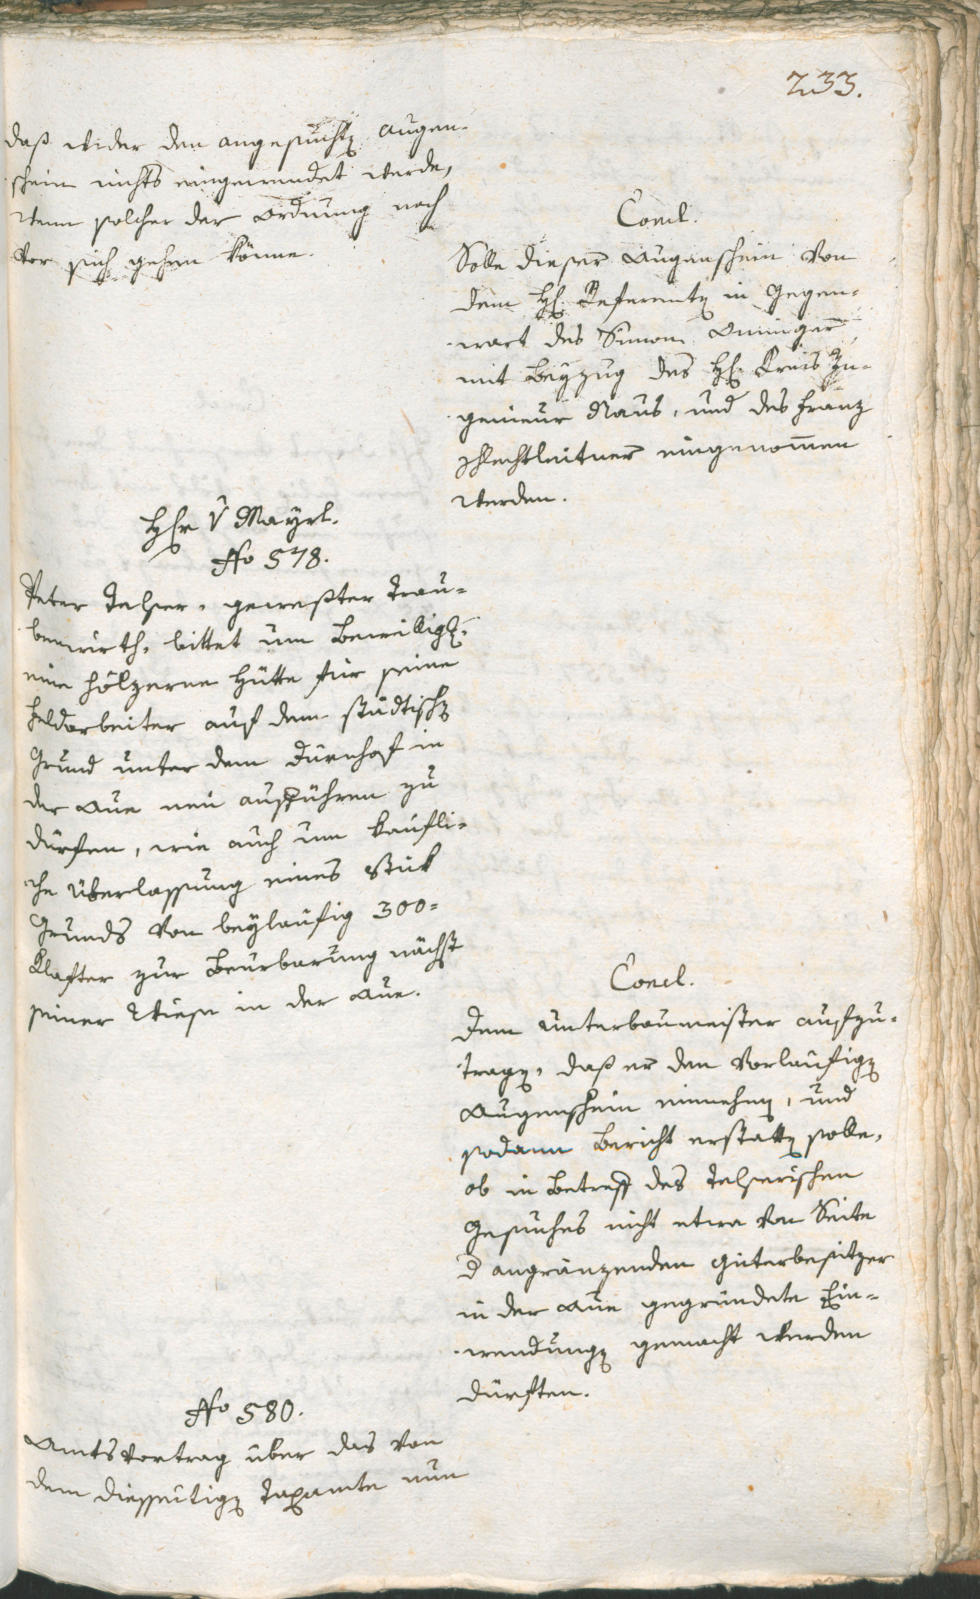 233.
daß wider den angesuchten Augen-
schein nichts eingewendet werde,
wenn solcher der Ordnung nach
vor sich gehen könne.
Concl.
Solle dieser Augenschein von
dem H: Referenten in Gegen-
wart des Simon Oninger,
mit Beyzug des H: Kreis In-
genieur Naus, und des Franz
Schlechtleitner eingenommen
werden.
Hr v Mayrl.
No 578.
Peter Telser, gewester Trau-
benwirth, bittet um Bewillig:
eine hölzerne Hütte für seine
Feldarbeiter auf dem städtischen
Grund unter dem Dürnhof in
der Aue neu aufführen zu
dürfen, wie auch um käufli-
che Überlassung eines Stück
Grunds von beyläufig 300=
Klafter zur Beurbarung nächst
seiner Wiese in der Aue.
Concl.
Dem Unterbaumeister aufzu-
tragen, daß er den vorläufigen
Augenschein einnehmen, und
sodann Bericht erstatten solle,
ob in Betreff des Telserischen
Gesuches nicht etwa von Seite
d angränzenden Güterbesitzer
in der Aue gegründete Ein-
wendungen gemacht werden
dürften.
No 580.
Amtsvortrag über das von
dem diesseitigen Taxamte nun